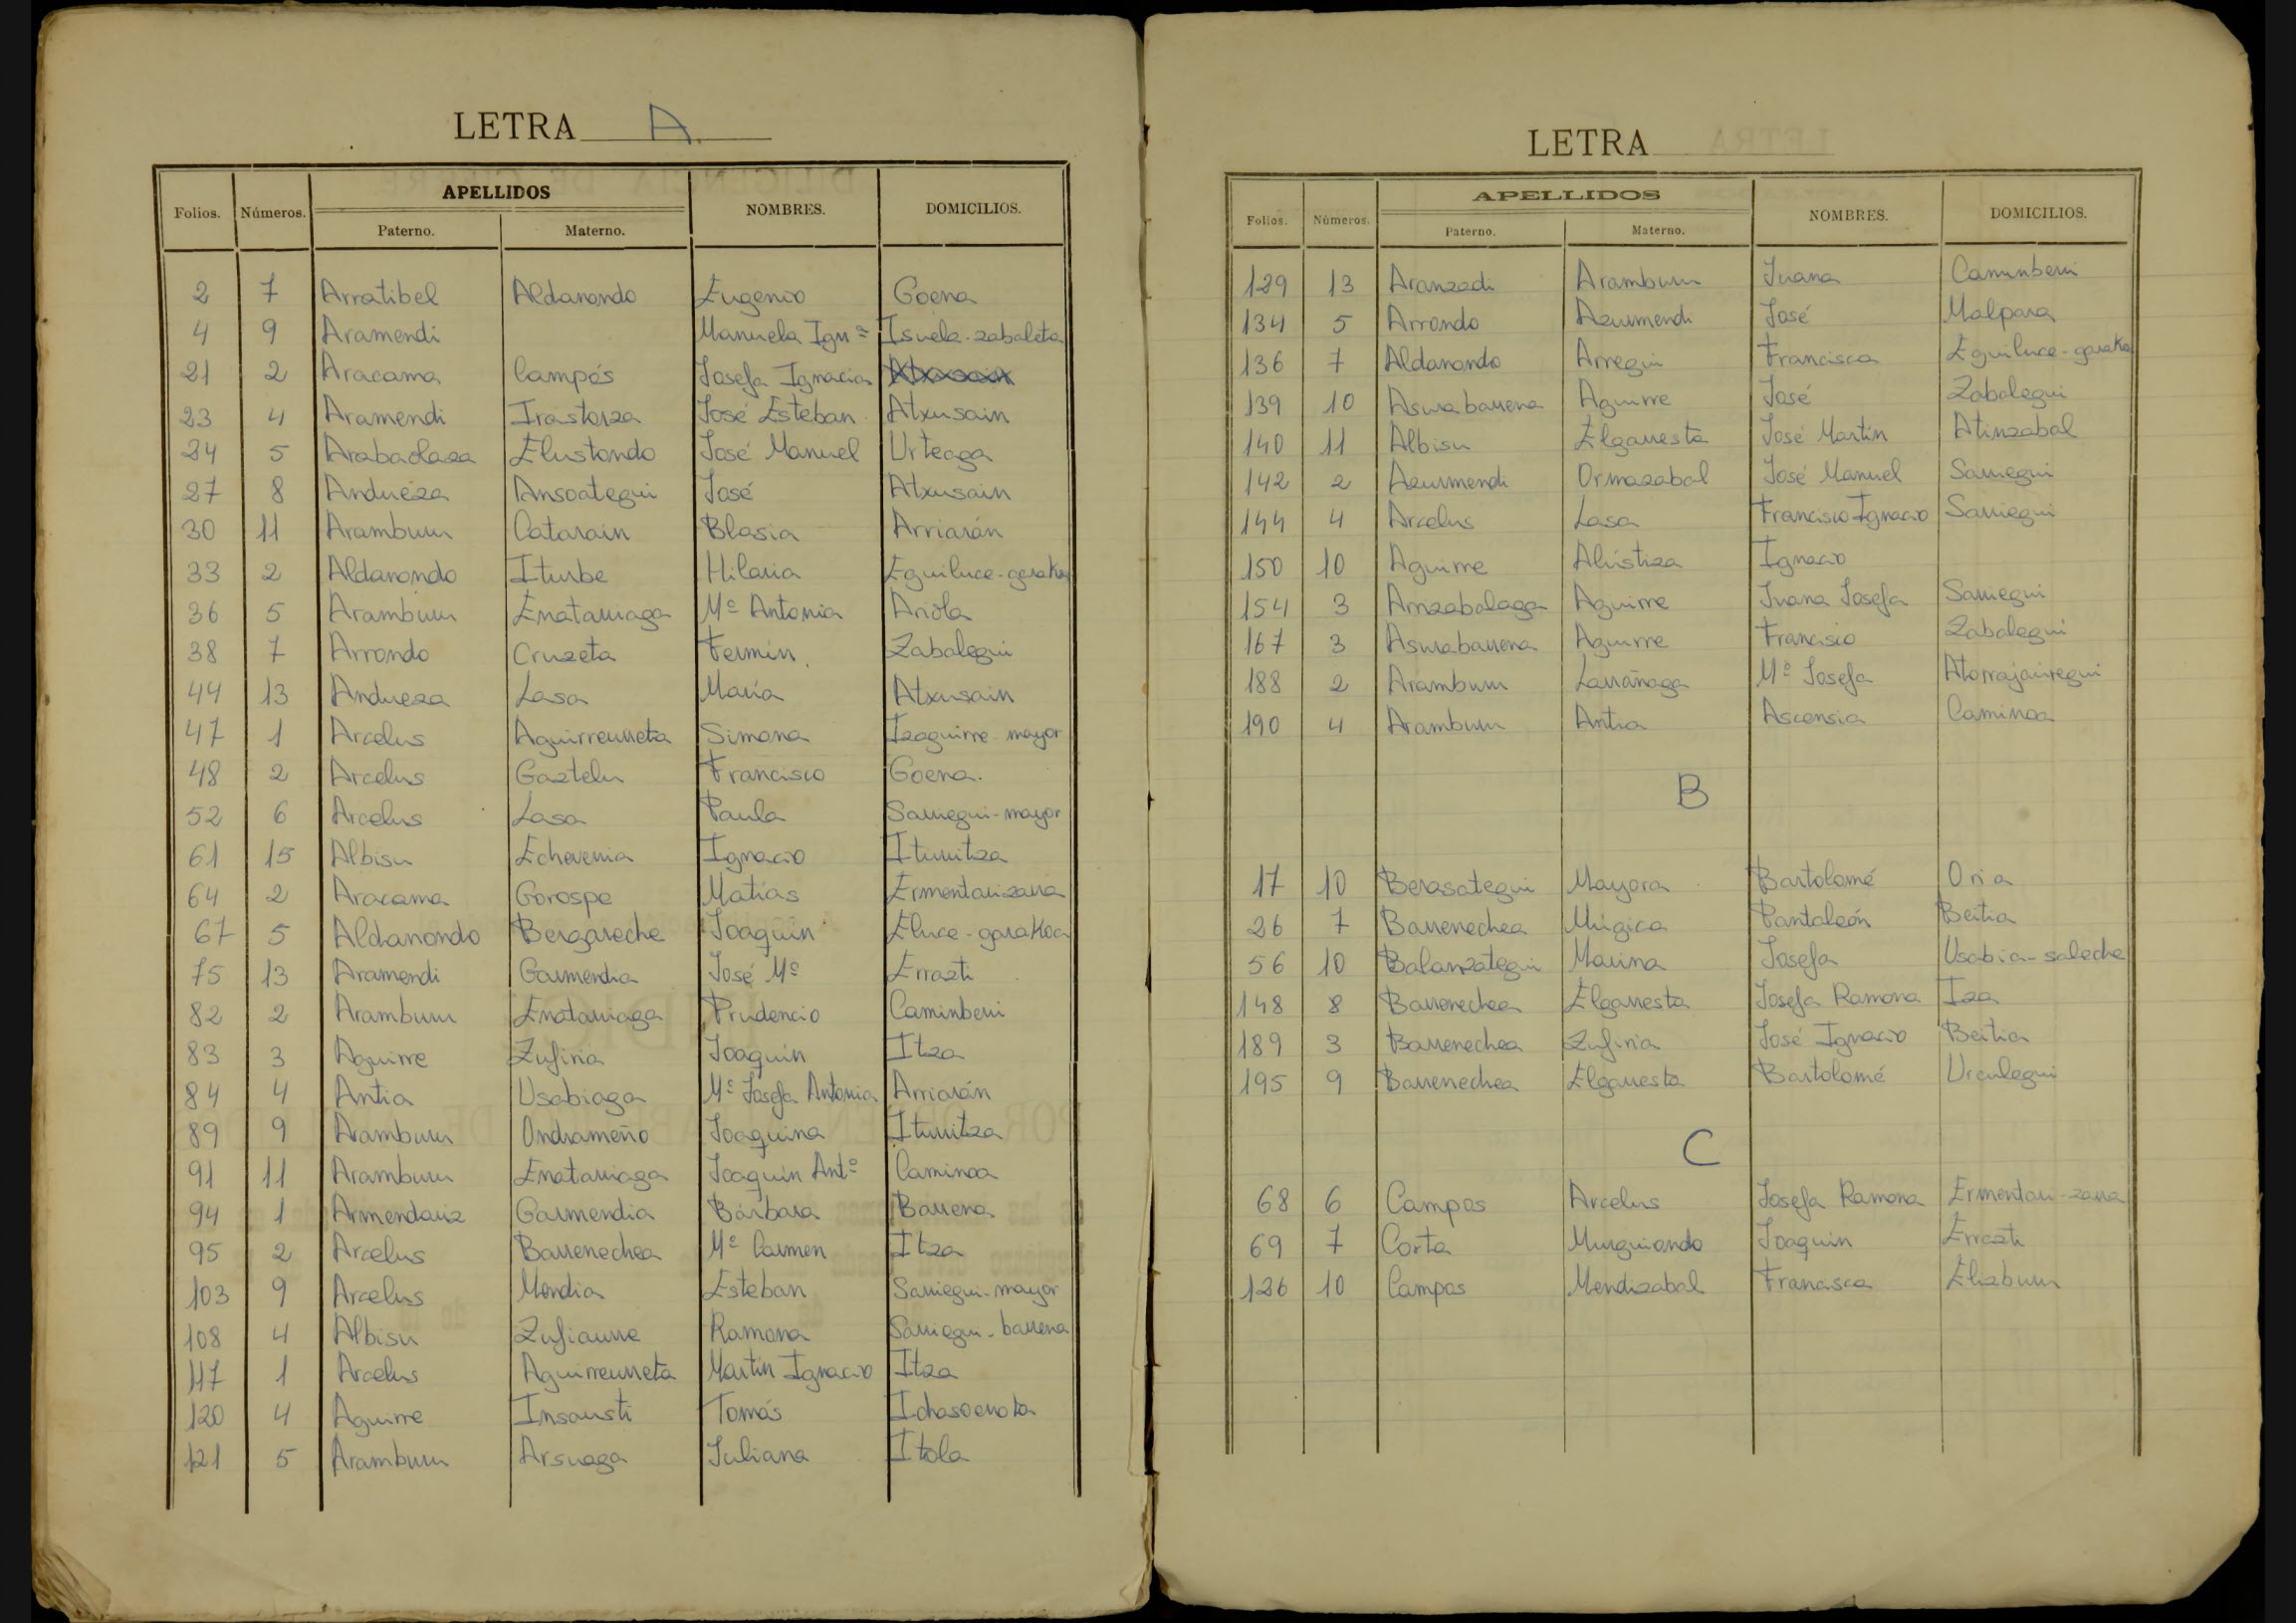 LETRA A.
APELLIDOS
Folios. Números. Paterno. Materno. NOMBRES. DOMICILIOS.
2 7 Arratibel Aldanondo Eugenio Goena
4 9 Aramendi Manuela Ignª Isuela-zabaleta
21 2 Aracama Campos Josefa Ignacia
23 4 Aramendi Irastorza José Esteban Atxusain
24 5 Arabaolaza Elustondo José Manuel Urteaga
27 8 Andueza Ansoategui José Atxusain
30 11 Aramburu Catarain Blasia Arriarán
33 2 Aldanondo Iturbe Hilaria Eguiluce-garakoa
36 5 Aramburu Enatarriaga Mª Antonia Ariola
38 7 Arrondo Cruzeta Fermín Zabalegui
44 13 Andueza Lasa María Atxusain
47 1 Arcelus Aguirreurreta Simona Izaguirre-mayor
48 2 Arcelus Gaztelu Francisco Goena.
52 6 Arcelus Lasa Paula Sarriegui-mayor
61 15 Albisu Echeverria Ignacio Iturritza
64 2 Aracama Gorospe Matías Ermentarizarra
67 5 Aldanondo Bergareche Joaquín Eluce-garakoa
75 13 Aramendi Garmendia José Mª Errazti
82 2 Aramburu Enatarriaga Prudencio Caminberri
83 3 Aguirre Zufiria Joaquín Itza
84 4 Antia Usabiaga Mª Josefa Antonia Arriarán
89 9 Aramburu Ondrameño Joaquina Iturritza
91 11 Aramburu Enatarriaga Joaquín Antº Caminoa
94 1 Armendariz Garmendia Bárbara Barrena
95 2 Arcelus Barrenechea Mª Carmen Itza
103 9 Arcelus Mendia Esteban Sarriegui-mayor
108 4 Albisu Zufiaurre Ramona Sarriegui-barrena
117 1 Arcelus Aguirreurreta Martín Ignacio Itza
120 4 Aguirre Insausti Tomás
121 5 Aramburu Arsuaga Juliana Itola
LETRA
APELLIDOS
Folios. Números. Paterno. Materno. NOMBRES. DOMICILIOS.
129 13 Aranzadi Aramburu Juana Caminberri
134 5 Arrondo Azurmendi José Malpara
136 7 Aldanondo Arregui Francisca Eguiluce-garakoa
139 10 Asurabarrena Aguirre José Zabalegui
140 11 Albisu Elgarresta José Martín Atinzabal
142 2 Azurmendi Ormazabal José Manuel Sarriegui
144 4 Arcelus Lasa Francisco Ignacio Sarriegui
150 10 Aguirre Alústiza Ignacio
154 3 Arrizabalaga Aguirre Juana Josefa Sarriegui
167 3 Asurabarrena Aguirre Francisco Zabalegui
188 2 Aramburu Larrañaga Mª Josefa Atorrajaúregui
190 4 Aramburu Antia Ascensia Caminoa
B
17 10 Berasategui Mayora Bartolomé Oria
26 7 Barrenechea Múgica Pantaleón Beitia
56 10 Balanzategui Marina Josefa Usabia-saleche
148 8 Barrenechea Elgarresta Josefa Ramona Iza
189 3 Barrenechea Zufiria José Ignacio Beitia
195 9 Barrenechea Elgarresta Bartolomé Urculegui
C
68 6 Campos Arcelus Josefa Ramona Ermentari-zarra
69 7 Corta Murguiondo Joaquín Errazti
126 10 Campos Mendizabal Francisca Elizburu